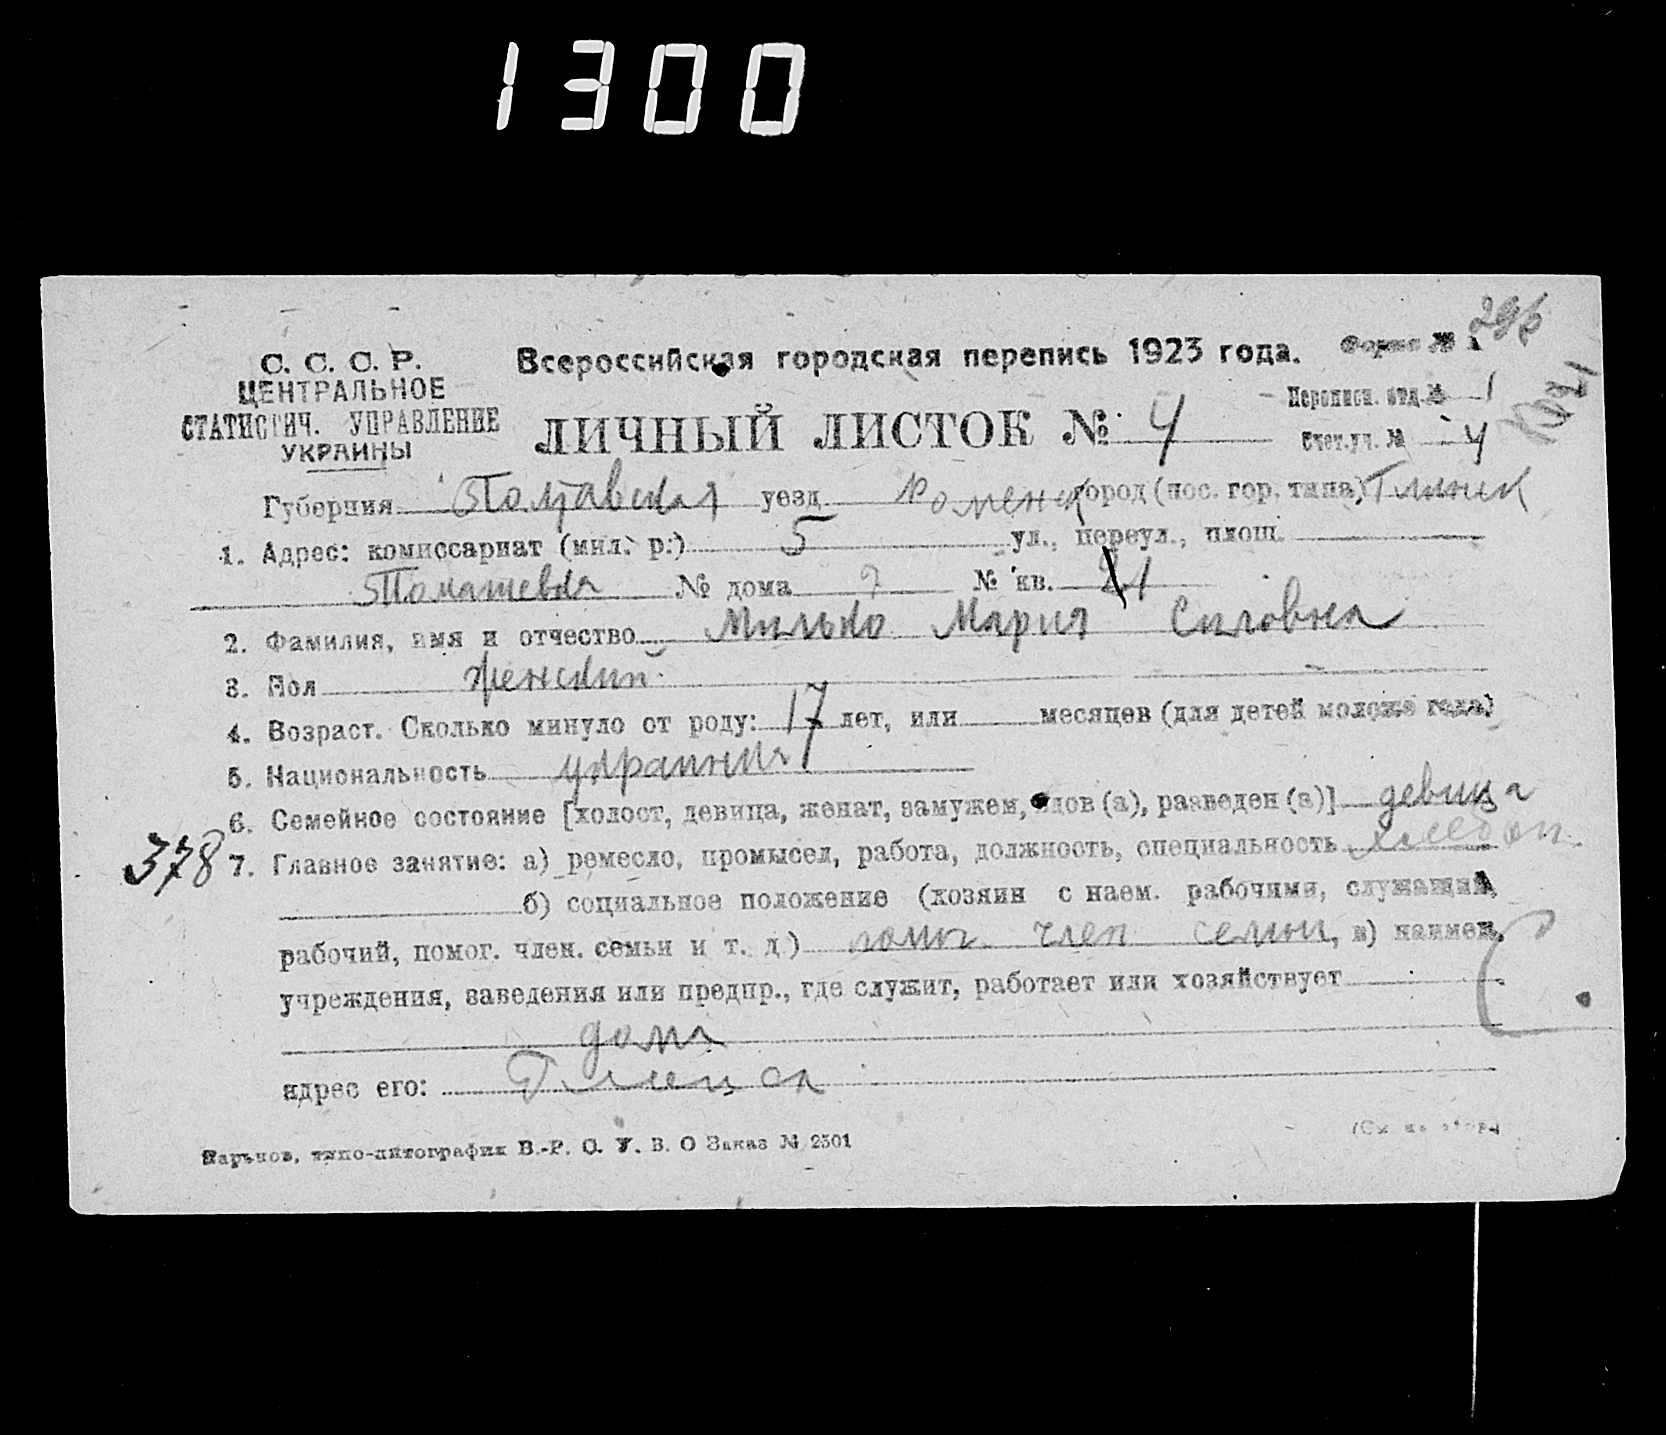 1300
296
С. С. С. Р.
ЦЕНТРАЛЬНОЕ
СТАТИСТИЧ. УПРАВЛЕНИЕ
УКРАИНЫ
Всероссийская городская перепись 1923 года.
Форма № 1
ЛИЧНЫЙ ЛИСТОК № 4
Переписн. отд. № 1
Счет.уч. № 4
Губерния Полтавская уезд Роменск город (пос. гор. типа) Глинск
1. Адрес: комиссариат (мил. р.) 5 ул., переул., площ.
№ дома 7 № кв. 1
2. Фамилия, имя и отчество Милько Мария Силовна
3. Пол женский
4. Возраст. Сколько минуло от роду: 17 лет, или месяцев (для детей моложе года)
5. Национальность
6. Семейное состояние [холост, девица, женат, замужем, вдов (а), разведен (а)] девица
378
7. Главное занятие: а) ремесло, промысел, работа, должность, специальность хлебоп.
б) социальное положение (хозяин с наем. рабочими, служащий,
рабочий, помог. член. семьи и т. д.) помог. член семьи, в) наимен.
учреждения, заведения или предпр., где служит, работает или хозяйствует
дома
адрес его: Глинск
Харьков, типо-литография В.-Р. О. У. В. О Заказ № 2301